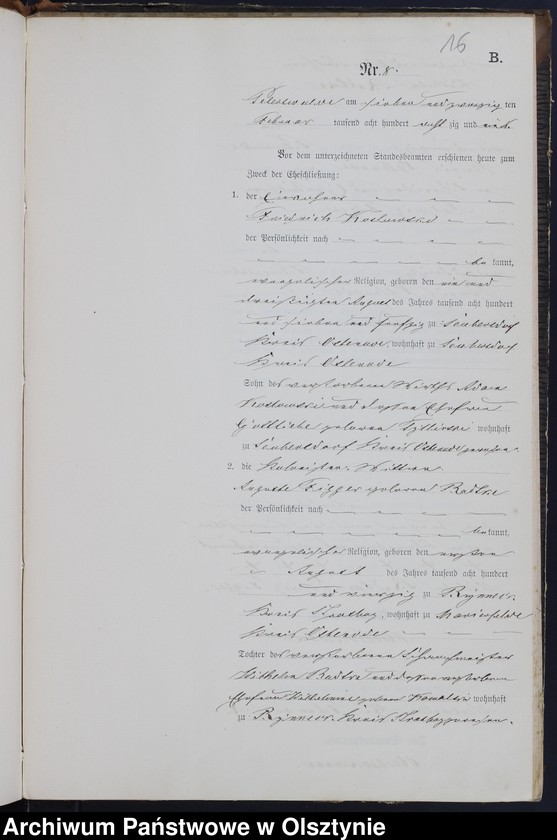 16
B.
Nr. 8.
am sieben und zwanzig ten
Februar tausend acht hundert acht zig und
Vor dem unterzeichneten Standesbeamten erschienen heute zum
Zweck der Eheschließung:
1. der Einwohner
Friedrich Koslowski
der Persönlichkeit nach
be kannt,
evangelischer Religion, geboren den ein und
dreißigsten August des Jahres tausend acht hundert
und sieben und fünfzig zu Seubersdorf
Kreis Osterode, wohnhaft zu Seubersdorf
Kreis Osterode
Sohn des verstorbenen Wirths Adam
Koslowski und dessen Ehefrau
Gottliebe geborene wohnhaft
zu Seubersdorf Kreis Osterode
2. die Wittwe
Auguste geborene Badtke
der Persönlichkeit nach
be kannt,
evangelischer Religion, geboren den ersten
August des Jahres tausend acht hundert
und vierzig zu Rynnek
Kreis, wohnhaft zu Marienfelde
Kreis Osterode
Tochter des verstorbenen
Wilhelm Badtke und dessen verstorbenen
Ehefrau Wilhelmine geborene wohnhaft
zu Rynnek Kreis
Archiwum Państwowe w Olsztynie